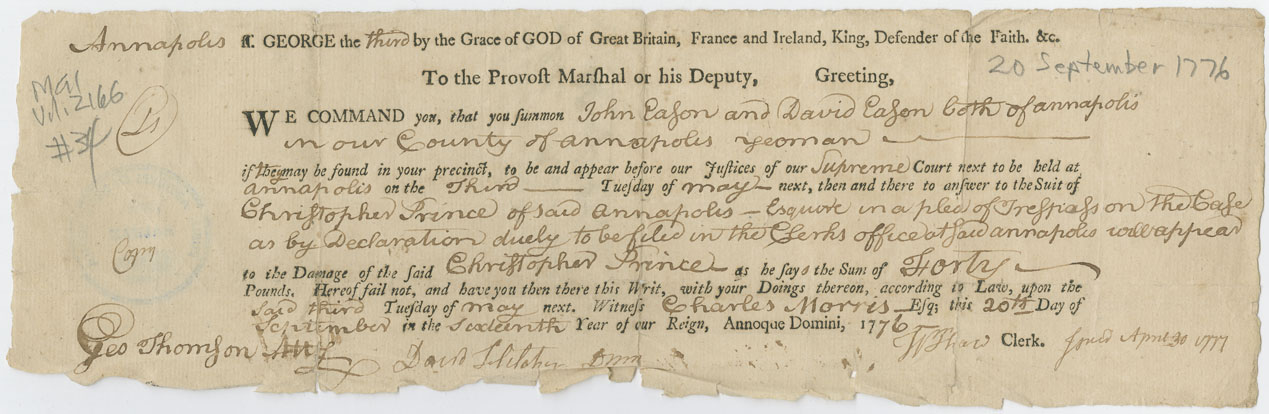 Annapolis ss. GEORGE the third by the Grace of GOD of Great Britain, France and Ireland, King, Defender of the Faith. &c.
To the Provoſt Marſhal or his Deputy, Greeting,
20 September 1776
Mar
#34
WE COMMAND you, that you ſummon John Eaſon and David Eaſon both of annapolis
in our County of annapolis yeoman
if they may be found in your precinct, to be and appear before our Juſtices of our Supreme Court next to be held at
annapolis on the Third Tueſday of may next, then and there to anſwer to the Suit of
Christopher Prince of said annapolis - Esquire in a plea of Treſpaſs on the Caſe
as by Declaration duely to be filed in the Clerks office at said annapolis will appear
Copy
to the Damage of the ſaid Chriſtopher Prince as he ſays the Sum of Forty
Pounds. Hereof fail not, and have you then there this Writ, with your Doings thereon, according to Law, upon the
said third Tueſday of may next. Witneſs Charles Morris Eſq; this 20th Day of
September in the Sixteenth Year of our Reign, Annoque Domini, 1776
Geo Thomson Atty David Clerk. April 30 1777